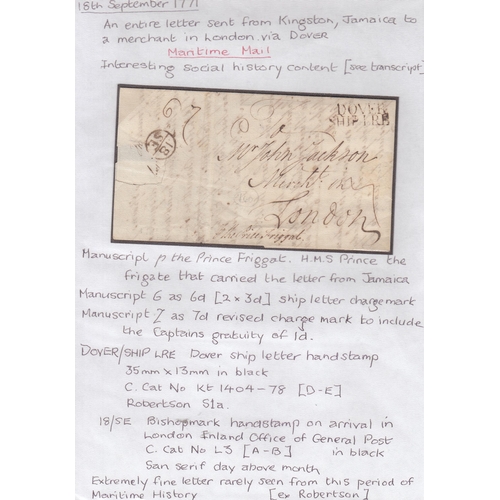 18th September 1771
An entire letter sent from Kingston, Jamaica to
a merchant in London via Dover
Maritime Mail
Interesting social history content [see transcript]
6 7
DOVER
SHIP LRE
18
SE
To
Mr John Jackson
Mercht.
London
P the Prince Friggat
Manuscript p the Prince Friggat. H.M.S Prince the
frigate that carried the letter from Jamaica
Manuscript 6 as 6d [2x3d] ship letter chargemark
Manuscript 7 as 7d revised charge mark to include
the Captains gratuity of 1d.
DOVER/SHIP LRE Dover ship letter handstamp
35mm x 13mm in black
C. Cat No Kt 1404-78 [D-E]
Robertson S1a.
18/SE Bishopmark handstamp on arrival in
London Inland Office of General Post
C. Cat No L3 [A-B] in black
San serif day above month
Extremely fine letter rarely seen from this period of
Maritime History [ex Robertson]